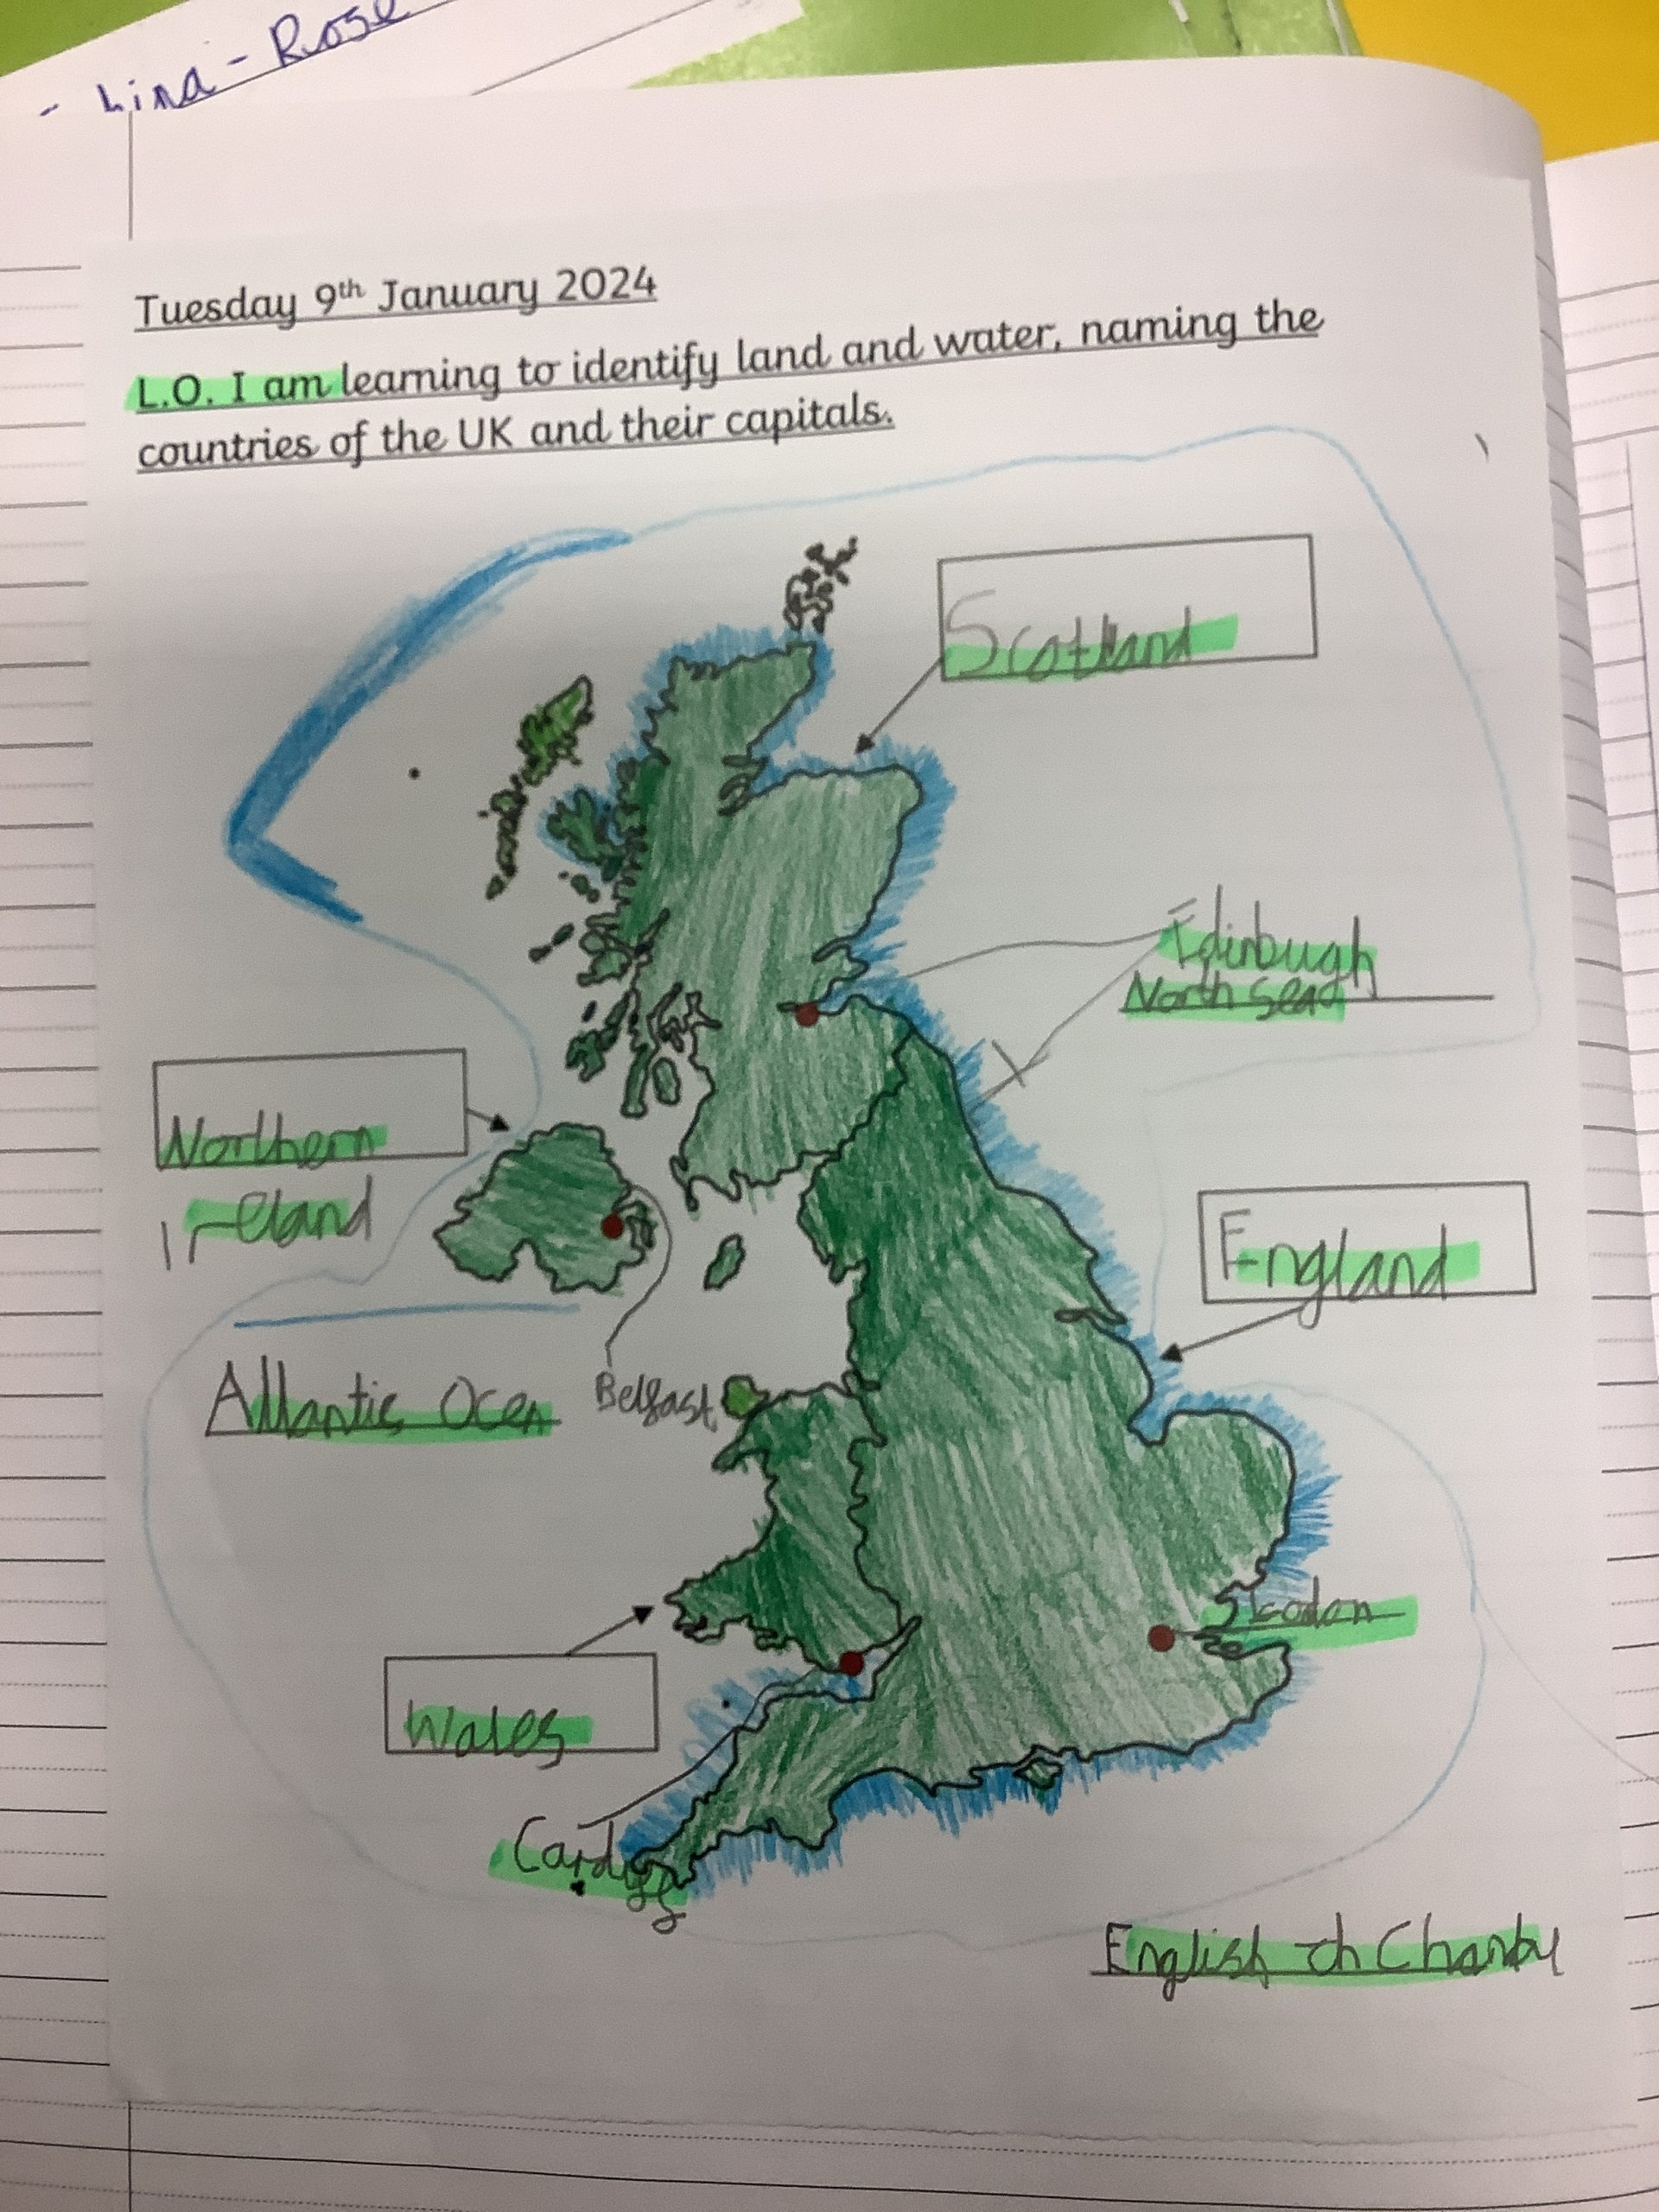 - Lina-Rose
Tuesday 9th January 2024
L.O. I am learning to identify land and water, naming the
countries of the UK and their capitals.
Scotland
Edinbugh
North Sea
Northern
Ireland
England
Atlantic Ocen
Belfast
Wales
Cardiff
English